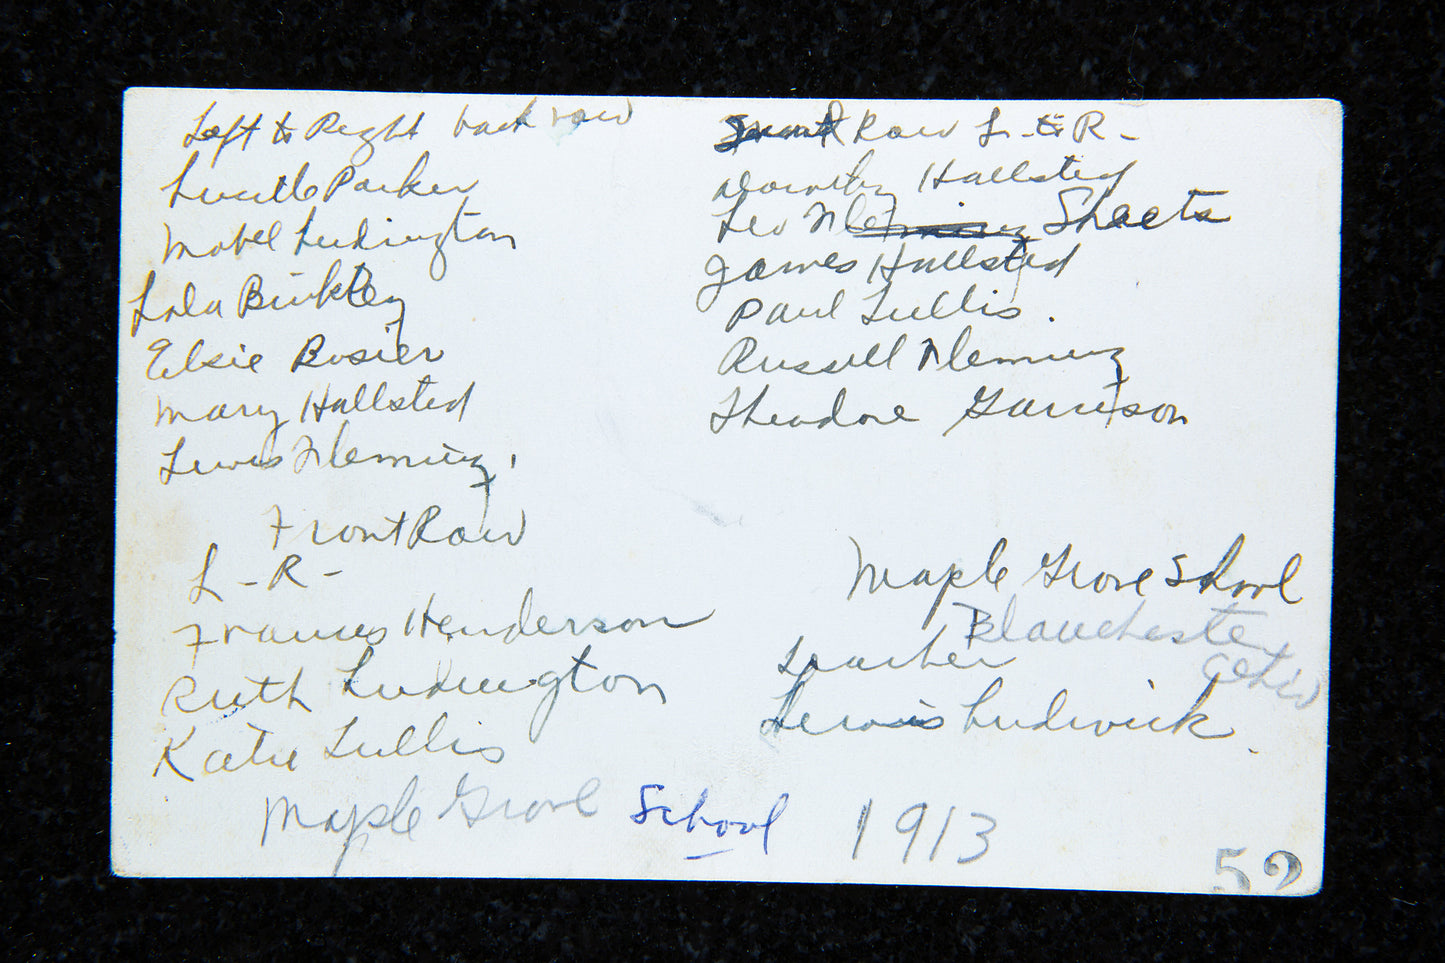 Left to Right back row
Lucille Parker
Mabel Ludington
Lola Binkley
Elsie Bosier
Mary Hallsted
Lewis Fleming.
Front Row
L - R -
Frances Henderson
Ruth Ludington
Katie Tullis
Maple Grove School 1913
Front Row L - to R -
Dorothy Hallsted
Leo Fleming Sheets
James Hallsted
Paul Tullis.
Russell Fleming
Theodore Garrison
Maple Grove School
Blanchester
Ohio
Teacher
Lewis Ludwick.
52